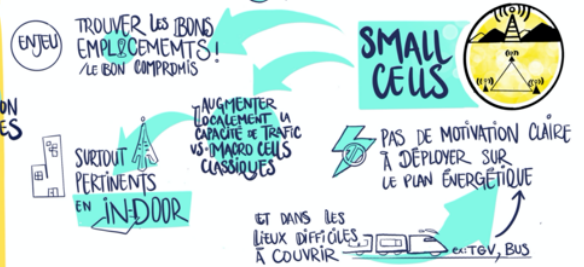 ENJEU
TROUVER LES BONS
EMPLACEMENTS!
/LE BON COMPROMIS
SMALL
CELLS
ON
ES
AUGMENTER
LOCALEMENT LA
CAPACITÉ DE TRAFIC
VS MACRO CELLS
CLASSIQUES
SURTOUT
PERTINENTS
EN IN-DOOR
PAS DE MOTIVATION CLAIRE
À DÉPLOYER SUR
LE PLAN ÉNERGÉTIQUE
ET DANS LES
LIEUX DIFFICILES
À COUVRIR
ex: TGV, BUS